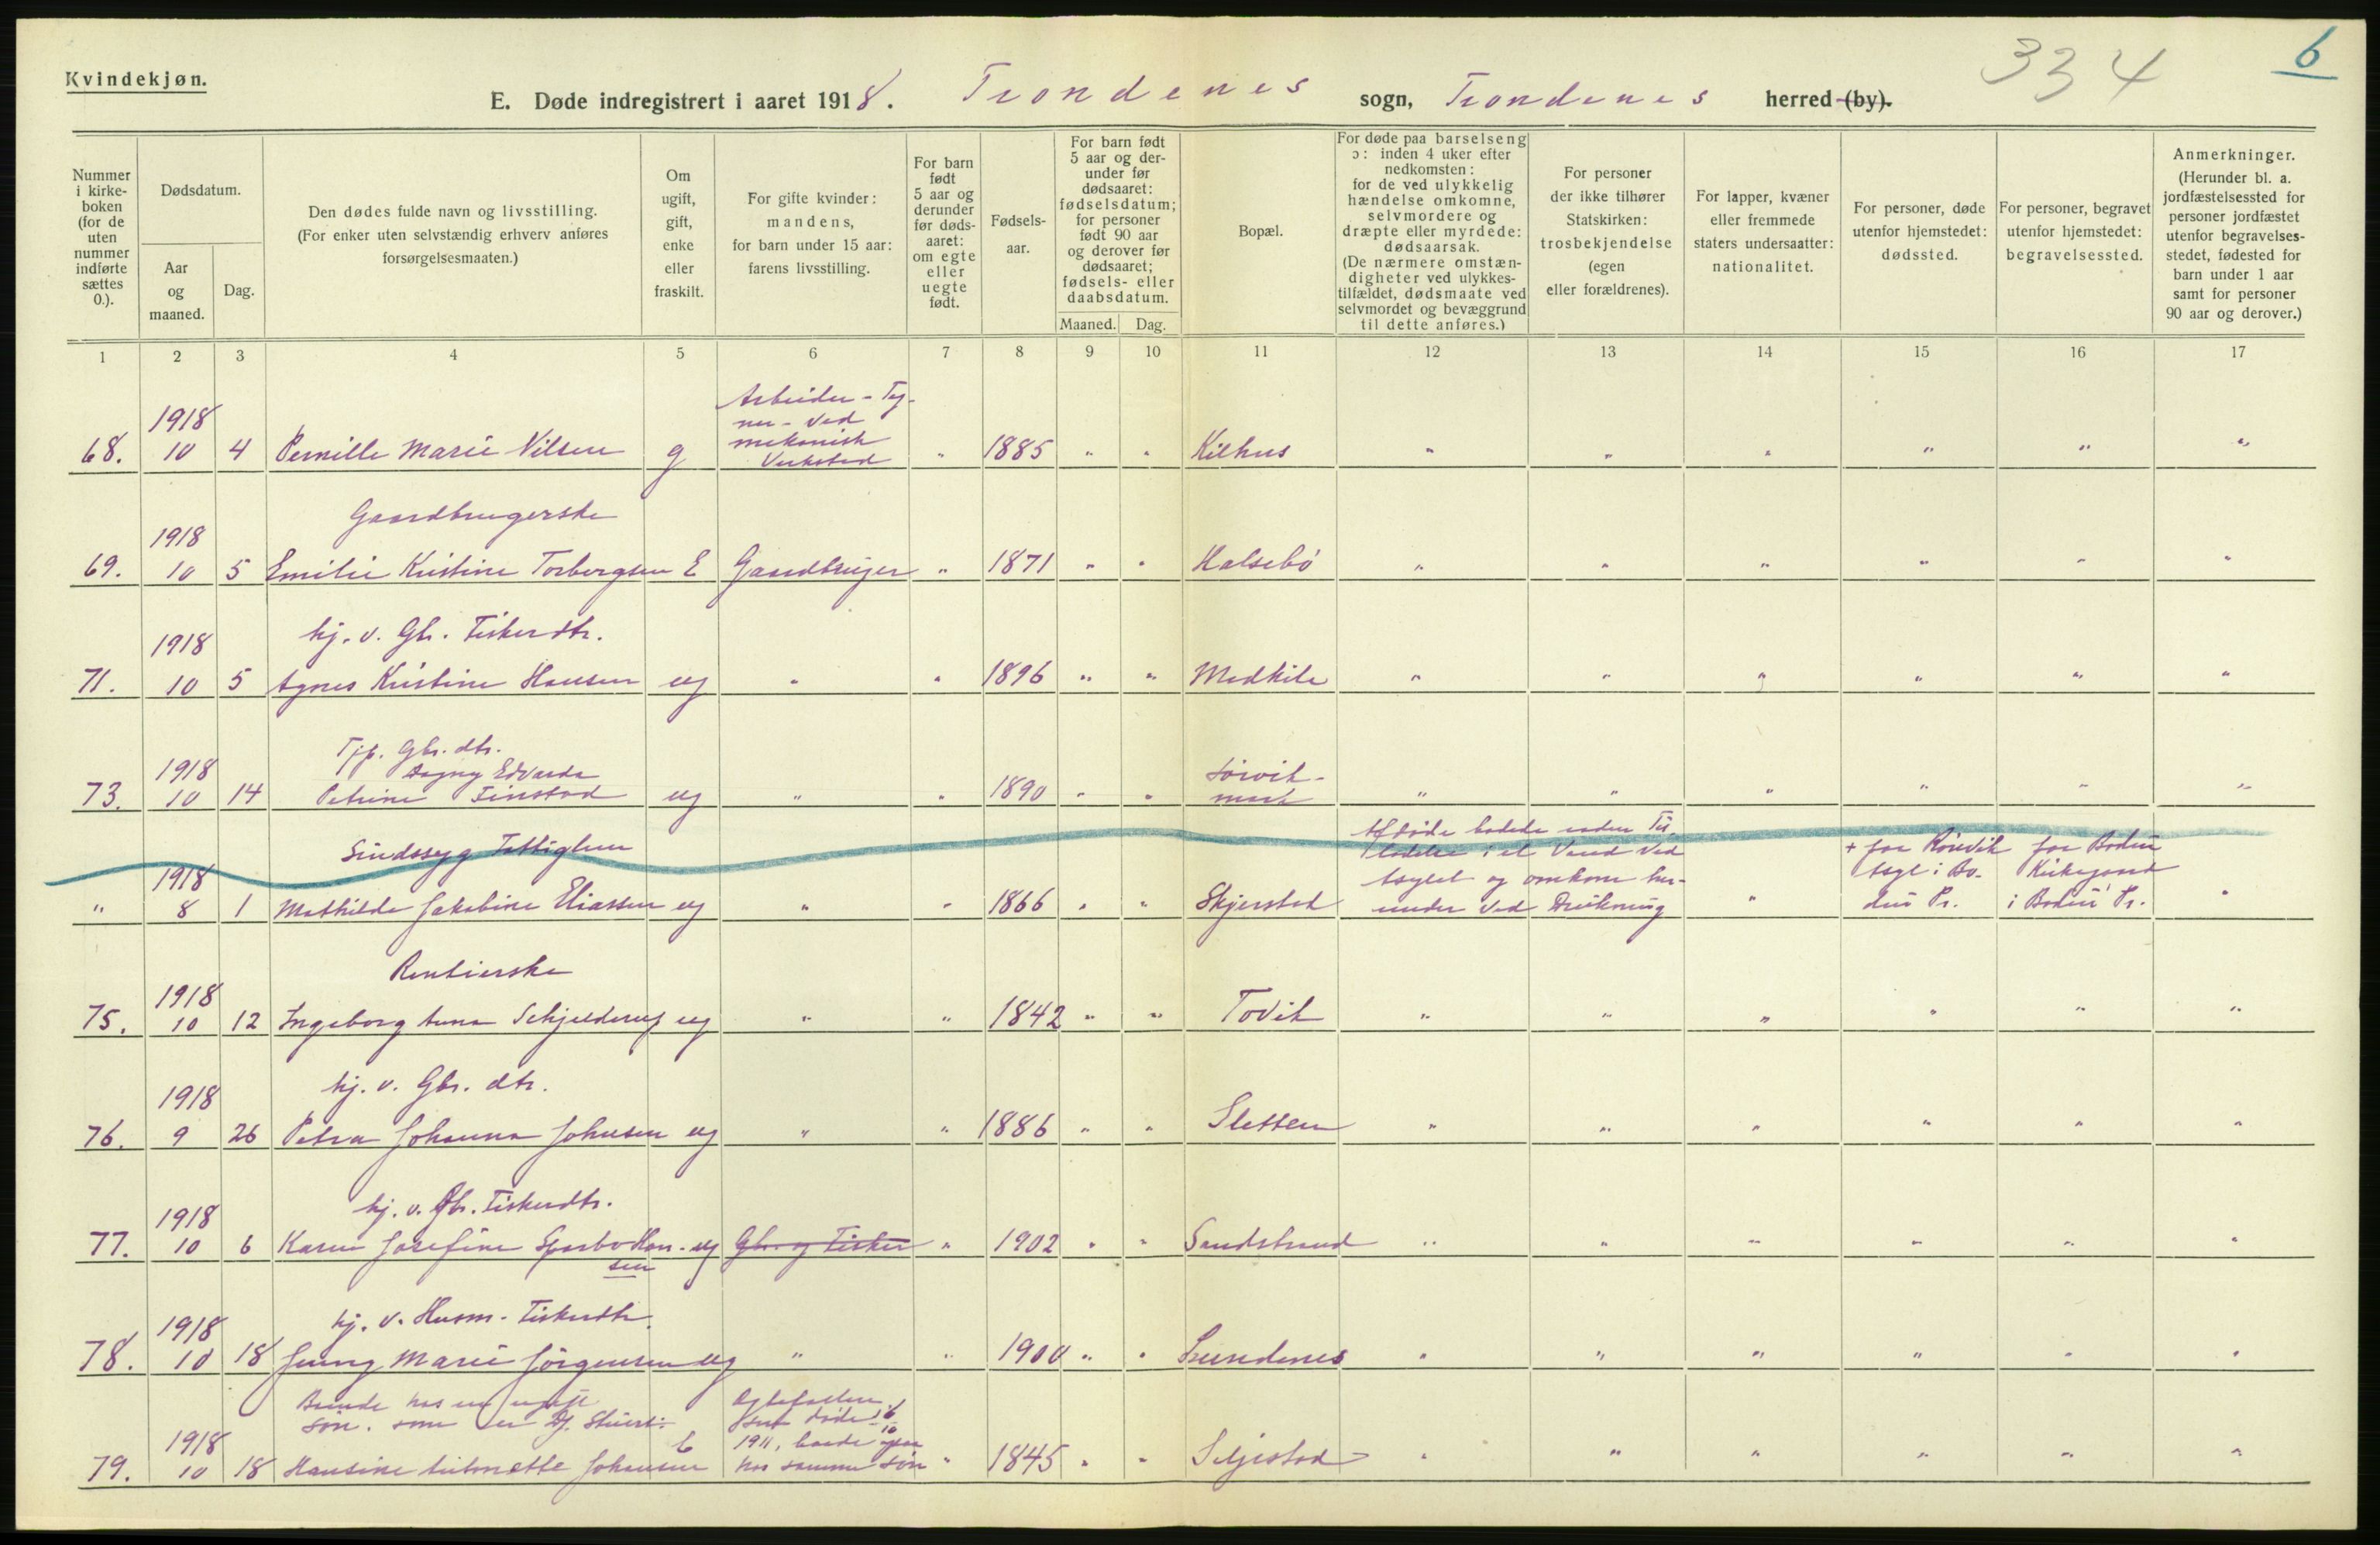 Kvindekjøn.
334
6
E. Døde indregistrert i aaret 1918. Trondenes sogn, Trondenes herred (by).
Nummer i kirkeboken (for de uten nummer indførte sættes 0.).
Dødsdatum.
Aar og maaned.
Dag.
Den dødes fulde navn og livsstilling. (For enker uten selvstændig erhverv anføres forsørgelsesmaaten.)
Om ugift, gift, enke eller fraskilt.
For gifte kvinder: mandens, for barn under 15 aar: farens livsstilling.
For barn født 5 aar og derunder før dødsaaret: om egte eller uegte født.
Fødselsaar.
For barn født 5 aar og derunder før dødsaaret: fødselsdatum; for personer født 90 aar og derover før dødsaaret; fødsels- eller daabsdatum.
Maaned. Dag.
Bopæl.
For døde paa barselseng ɔ: inden 4 uker efter nedkomsten: for de ved ulykkelig hændelse omkomne, selvmordere og dræpte eller myrdede: dødsaarsak. (De nærmere omstændigheter ved ulykkestilfældet, dødsmaate ved selvmordet og bevæggrund til dette anføres.)
For personer der ikke tilhører Statskirken: trosbekjendelse (egen eller forældrenes).
For lapper, kvæner eller fremmede staters undersaatter: nationalitet.
For personer, døde utenfor hjemstedet: dødssted.
For personer, begravet utenfor hjemstedet: begravelsessted.
Anmerkninger. (Herunder bl. a. jordfæstelsessted for personer jordfæstet utenfor begravelsesstedet, fødested for barn under 1 aar samt for personer 90 aar og derover.)
1 2 3 4 5 6 7 8 9 10 11 12 13 14 15 16 17
Arbeider - Teg-
1918 ner - ved
mekanisk
68. 10 4 Pernille Marie Nilsen g Verksted " 1885 " " Kilhus " " " " " "
Gaardbrugerske
1918
69. 10 5 Emilie Kristine Torbergsen E Gaardbruger " 1871 " " Halsebø " " " " " "
hj. v. Gbr. Fiskerdtr.
1918
71. 10 5 Agnes Kristine Hansen ug " " 1896 " " Medkile " " " " " "
Tjp. Gbr. dtr.
1918 Dagny Edvarda Sørvik-
73. 10 14 Petrine Finstad ug " " 1890 " " mark " " " " " "
Sindssyg Fattiglem
1918
" 8 1 Mathilde Jakobine Eliassen ug " " 1866 " " Skjerstad
Afdøde badede uden Til-
ladelse i et Vand ved
Asylet og omkom her-
under ved Drukning "
+ paa Rønvik
Asyl i Bo-
din Pr.
paa Bodin
Kirkegaard
i Bodin Pr. "
Rentierske
1918
75. 10 12 Ingeborg Anna Schjelderup ug " " 1842 " " Tovik " " " " " "
hj. v. Gbr. dtr.
1918
76. 9 26 Petra Johanna Johnsen ug " " 1886 " " Sletten " " " " " "
hj. v. Gbr. Fiskerdtr.
1918
77. 10 6 Karen Josefine Sparbo Han- ug Gbr. og Fisker " 1902 " " Sandstrand " " " " " "
sen
hj. v. Husm. - Fiskerdtr.
1918
78. 10 18 Jenny Marie Jørgensen ug " " 1900 " " " " " " " "
Boende hos en ugift
søn, som er
1918 Egtefællen
døde 6/10
1911, boede
79. 10 18 Hansine Johansen E hos samme søn " 1845 " " Seljestad " " " " " "